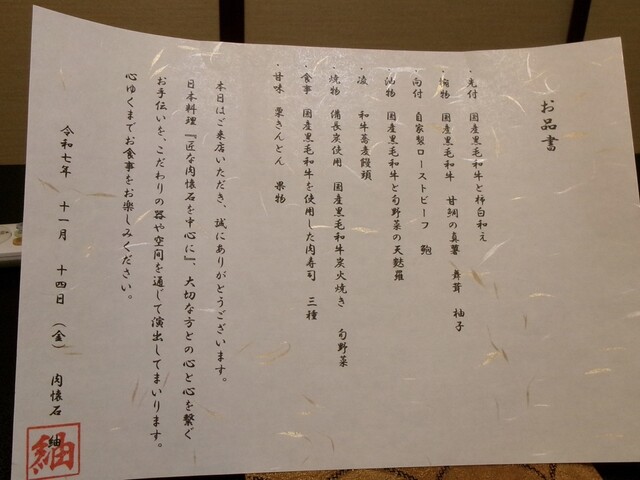 お品書
・先付 国産黒毛和牛と柿白和え
・椀物 国産黒毛和牛 甘鯛の真薯 舞茸 柚子
・向付 自家製ローストビーフ 鮑
・油物 国産黒毛和牛と旬野菜の天麩羅
・凌 和牛蕎麦饅頭
・焼物 備長炭使用 国産黒毛和牛炭火焼き 旬野菜
・食事 国産黒毛和牛を使用した肉寿司 三種
・甘味 栗きんとん 果物
本日はご来店いただき、誠にありがとうございます。
日本料理『匠な肉懐石を中心に』、大切な方との心と心を繋ぐ
お手伝いを、こだわりの器や空間を通じて演出してまいります。
心ゆくまでお食事をお楽しみください。
令和七年 十一月 十四日（金） 肉懐石 紬
紬